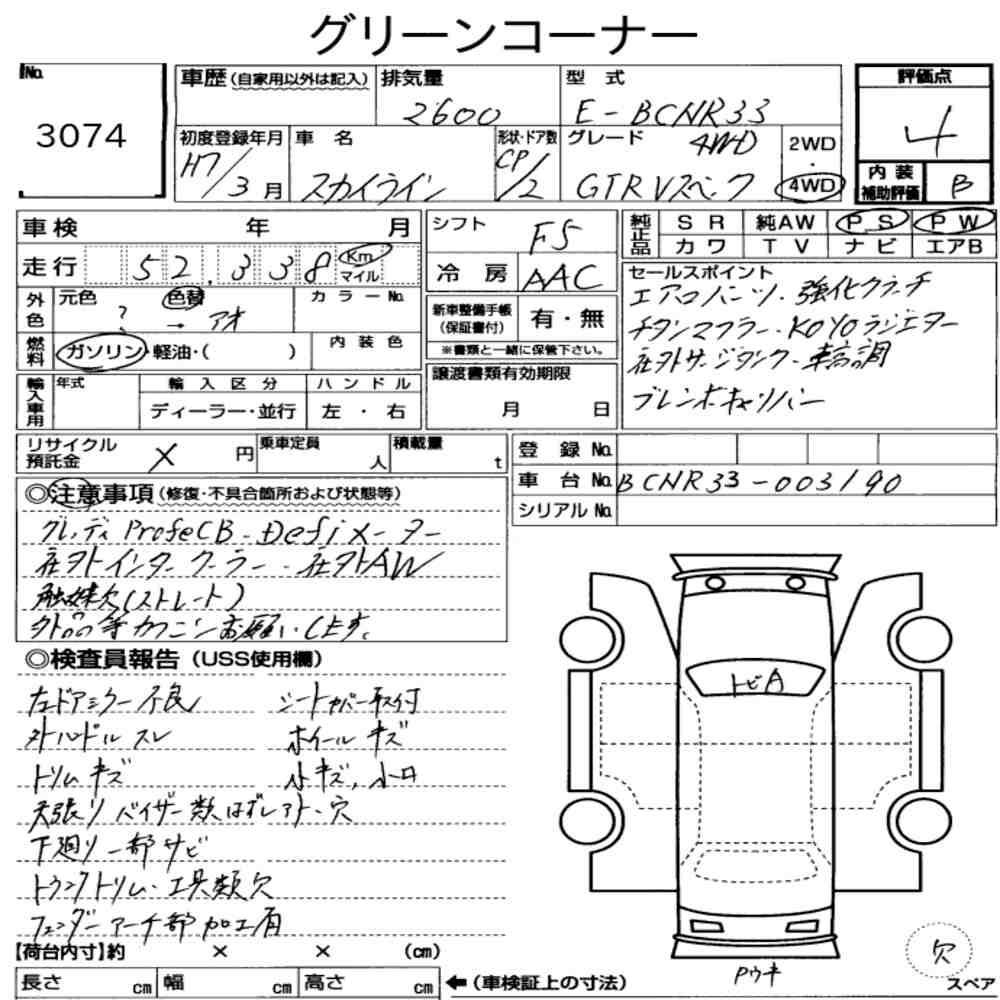 グリーンコーナー
No. 3074
車歴(自家用以外は記入) 排気量 2600 型 式 E-BCNR33 評価点 4
初度登録年月 H7/3月 車 名 スカイライン 形状・ドア数 CP/2 グレード 4WD GTR Vスペック 2WD・4WD
内装補助評価 B
車検 年 月
走行 52,338 Km マイル
シフト F5
冷 房 AAC
純正品 SR 純AW PS PW
カワ TV ナビ エアB
外色 元色 ? → 色替 アオ カラーNo.
燃料 ガソリン・軽油・( ) 内装色
新車整備手帳(保証書付) 有・無
※書類と一緒に保管下さい。
セールスポイント
エアロパーツ・強化クラッチ
チタンマフラー・KOYOラジエター
社外サージタンク・車高調
ブレンボキャリパー
輸入車用 年式 輸入区分 ディーラー・並行 ハンドル 左・右
譲渡書類有効期限 月 日
リサイクル預託金 X 円 乗車定員 人 積載量 t
登 録 No.
車 台 No. BCNR33-003190
シリアル No.
◎注意事項(修復・不具合箇所および状態等)
グレッディProfeCB・Defiメーター
社外インタークーラー・社外AW
触媒欠(ストレート)
外品の等カクニンお願いします。
◎検査員報告(USS使用欄)
左ドアミラー不良 シートカバー取付
外ハンドルスレ ホイールキズ
トリムキズ 小キズ,小凹
天張り バイザー類はずしアト・穴
下廻り一部サビ
トランクトリム・工具類欠
フェンダーアーチ部加工有
トビA
Pウキ
欠
スペア
【荷台内寸】約 × × (cm)
長さ cm 幅 cm 高さ cm ←(車検証上の寸法)